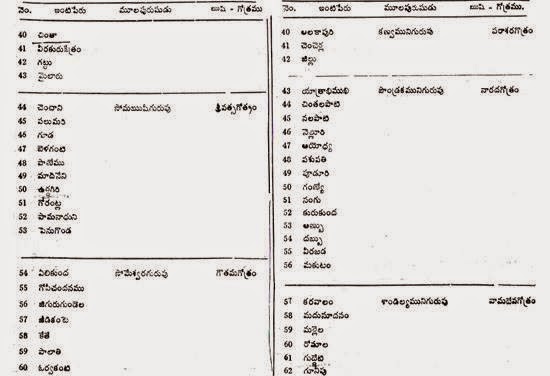 నెం. ఇంటిపేరు మూలపురుషుడు ఋషి - గోత్రము
40 చింతా
41 వీరకురుక్షేత్రం
42 గట్టు
43 మైలారు
44 చెందాని సోమఋషిగురువు శ్రీవత్సగోత్రం
45 పలుమరి
46 గూడ
47 బెళగంటి
48 పానేము
49 మాదినేని
50 ఉర్వగిరి
51 గోరంట్ల
52 పామనాధుని
53 పెనుగొండ
54 ఏలికుంద సోమేశ్వరగురువు గౌతమగోత్రం
55 గోపీచందనము
56 జిగురుగుండెల
57 జీడికంటి
58 కేతే
59 పాలాతి
60 ఓర్వకంటి
నెం. ఇంటిపేరు మూలపురుషుడు ఋషి - గోత్రము.
40 అలకాపురి కణ్వమునిగురువు పరాశరగోత్రం
41 చెంచెర్ల
42 జిల్లు
43 యాత్రాధిముఖి పౌండ్రకమునిగురువు నారదగోత్రం
44 చింతలపాటి
45 నలపాటి
46 వెల్లూరి
47 అయోధ్య
48 పశుపతి
49 పూడూరి
50 గంన్యో
51 నంగు
52 కురుకుంద
53 అబ్బు
54 దబ్బు
55 వీరబడ
56 మకుటం
57 కరవాలం శాండిల్యమునిగురువు వామదేవగోత్రం
58 మదుసూదనం
59 మల్లెల
60 రోమాల
61 గుడ్డేటి
62 గూనీపు